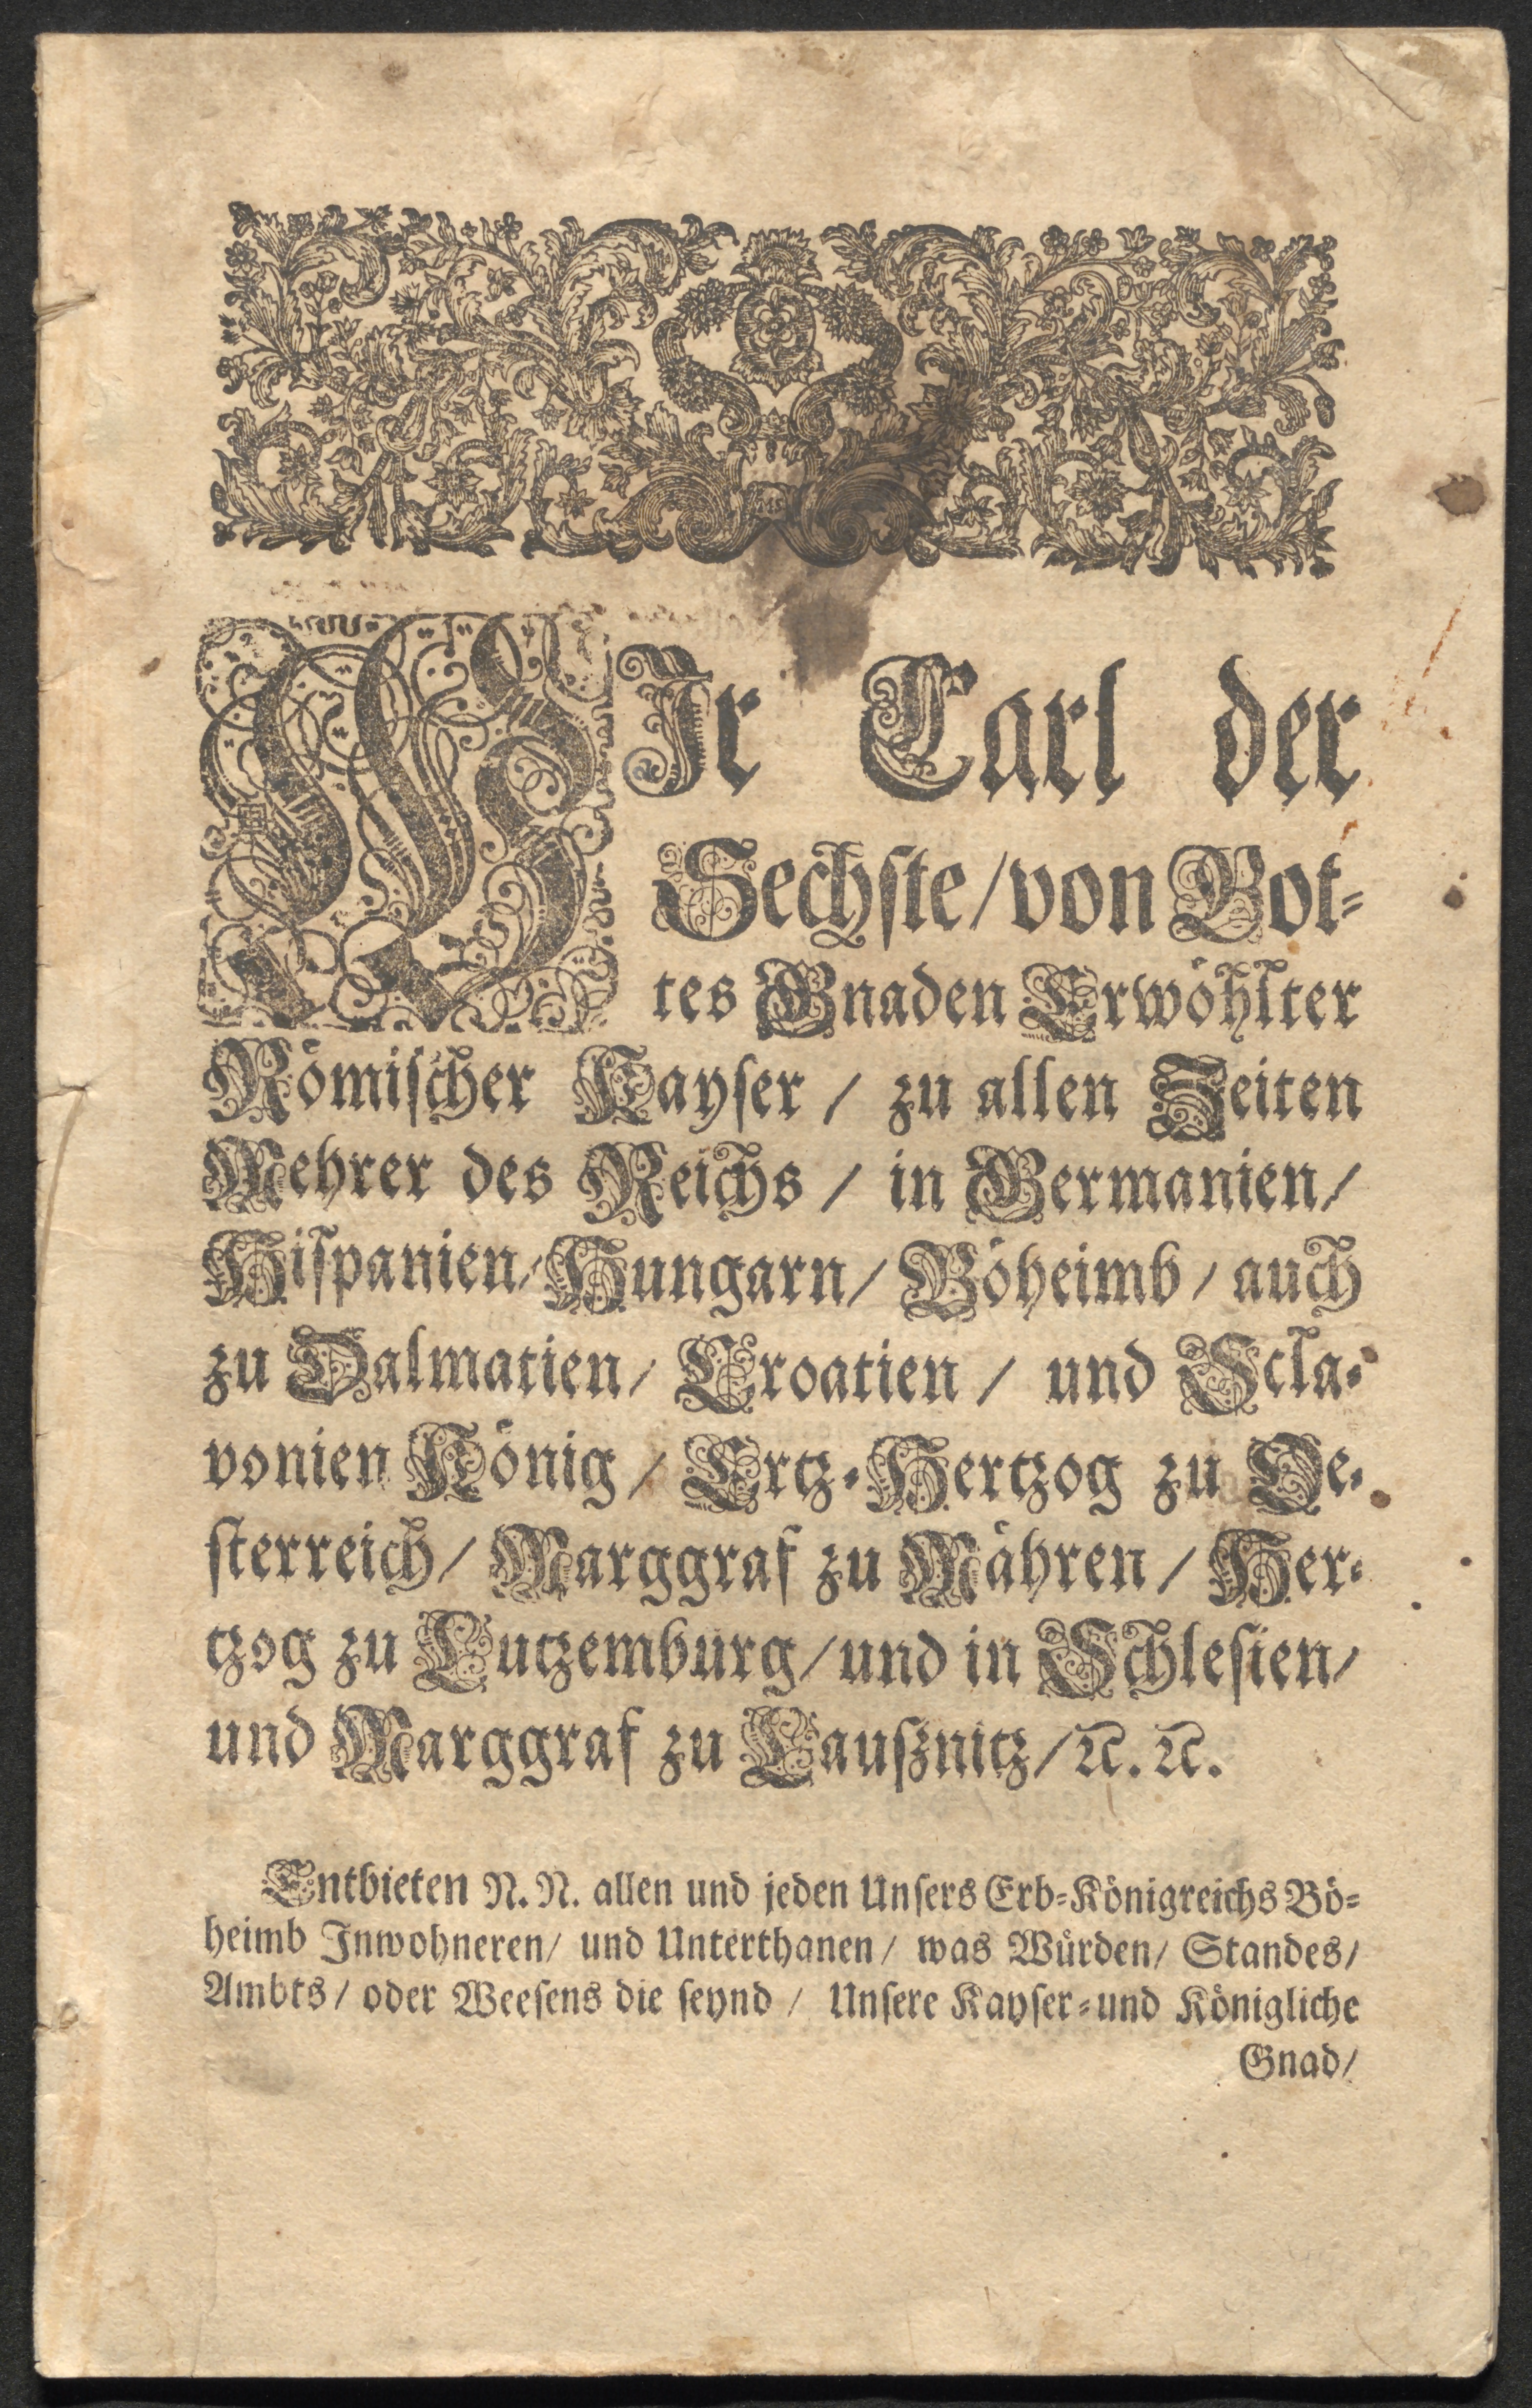 WIr Carl der
Sechste/ von Got-
tes Gnaden Erwöhlter
Römischer Kayser / zu allen Zeiten
Mehrer des Reichs / in Germanien/
Hispanien/ Hungarn/ Böheimb / auch
zu Dalmatien/ Croatien / und Scla-
vonien König / Ertz-Hertzog zu Oe-
sterreich/ Marggraf zu Mähren / Her-
tzog zu Lutzemburg/ und in Schlesien/
und Marggraf zu Lausznitz/ ꝛc. ꝛc.
Entbieten N. N. allen und jeden Unsers Erb-Königreichs Bö-
heimb Inwohneren/ und Unterthanen/ was Würden/ Standes/
Ambts / oder Weesens die seynd / Unsere Kayser- und Königliche
Gnad/